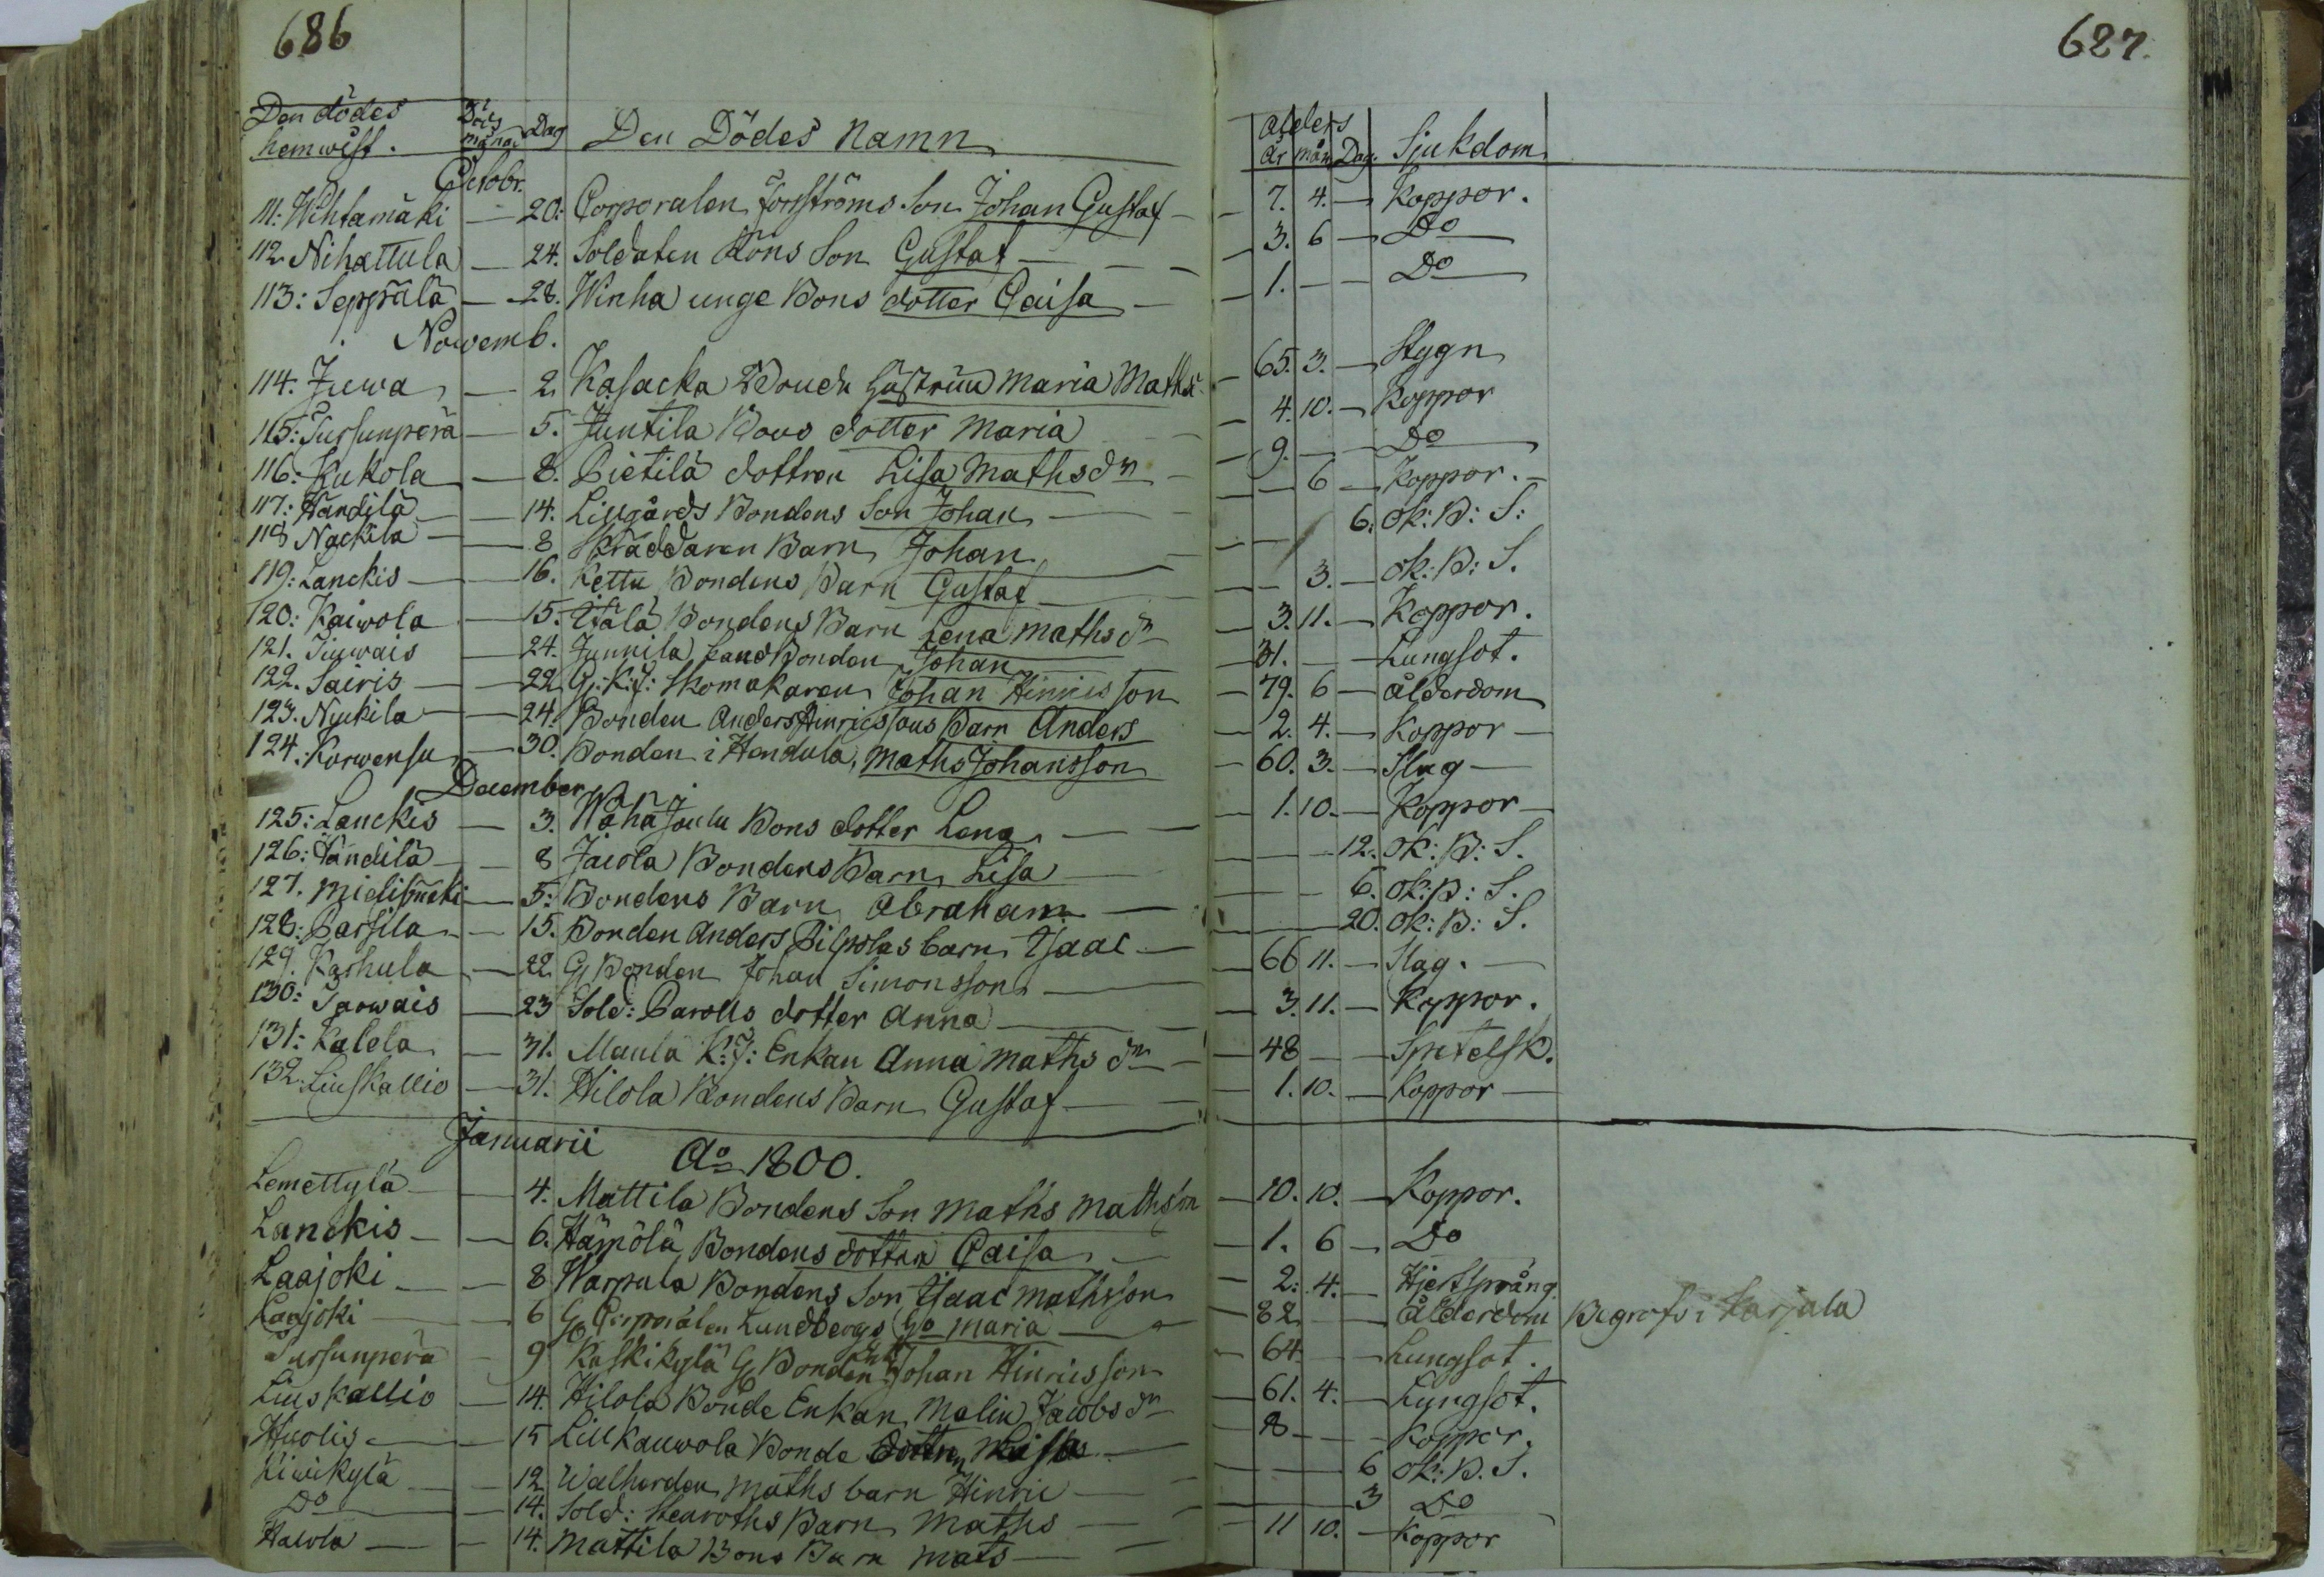 686
687.
Den dödes hemwist. Döds månad Dag Den Dödes Namn Ålders år mån Dag. Sjukdom
Octobr.
111: Wihtamäki — 20. Corporalen Forsströms Son Johan Gustaf — 7. 4. — Koppor.
112. Nihattula — 24. Soldaten Köns Son Gustaf — 3. 6 — Do
113: Seppälä — 28. Winha unge Bons dotter Caisa — 1. — — Do
Nowemb.
114. Juwa — 2. Kasacka Bonde hustrun Maria Mathsd. — 65. 3. — Stygn
115: Tursunperä — 5. Juntila Bons dotter Maria — 4. 10. — Koppor
116: Kukola — 8. Pietilä dottren Lisa Mathsdr — 9. — — Do
117: Händilä — 14. Lillgårds Bondens Son Johan — — 6 — Koppor. —
118 Nackila — 8 Skräddaren Barn Johan — — — 6. Ok: B: S:
119: Lanckis — 16. Kettu Bondens Barn Gustaf — — 3. — Ok: B: S.
120: Kaiwola — 15. Ylälä Bondens Barn Lena Mathsdr — 3. 11. — Koppor.
121. Sarwais — 24. Junnila LandBonden Johan — 31. — — Lungsot.
122. Sairis — 22 G: K: J: Skomakaren Johan Hinricsson — 79. 6 — Ålderdom
123. Nyckila — 24. Bonden Anders Hinricssons Barn Anders — 2. 4. — Koppor —
124. Korwensu — 30. Bonden i Hendula, Maths Johansson — 60. 3. — Slag —
December
125: Lanckis — 3. Wähäjoulu Bons dotter Lena — 1. 10. — Koppor —
126: Händilä — 8 Jaiola Bondens Barn Lisa — — — 12. Ok: B: S.
127. Mielismäki — 5: Bondens Barn Abraham — — — 6. Ok: B: S.
128: Parsila — 15. Bonden Anders Pilpolas barn Isaac — — — 20. Ok: B: S.
129. Karhula — 22 G Bonden Johan Simonsson — 66 11. — Slag. —
130: Sarwais — 23 Sold: Parolls dotter Anna — 3. 11. — Koppor.
131: Kalela — 31. Maula K: J: Enkan Anna Mathsdr — 48 — — Spetelsk.
132. Liuskallio — 31. Hilola Bondens Barn Gustaf — 1. 10. — Koppor —
Januarii Ao 1800.
Lemettylä — 4. Mattila Bondens Son Maths Mathson — 10. 10. — Koppor.
Lanckis — 6. Hämölä Bondens dotter Caisa — 1. 6 — Do
Laajoki — 8 Warpula Bondens Son Isaac Mathsson — 2. 4. — Hjertsprång.
Laajoki — 6 G Corporalen Lundbergs Maria — 82 — — Ålderdom Begrofs i Karjala
Tursunperä — 9 Kaskikylä G Bonden Johan Hinricsson — 64. — — Lungsot.
Liuskallio — 14. Hilola Bonde Enkan Malin Jacobsdr — 61. 4. — Lungsot.
Huolis — 15 Lill Kauwola Bonde dottren Lisa — 8 — — Koppor.
Kiwikylä — 12 Walherden Maths barn Hinric — — — 6 Ok: B. S.
Do — 14. Sold: Stenroths Barn Maths — — — 3 Do
Halola — 14. Mattila Bons Barn Mats — 11 10. — Koppor